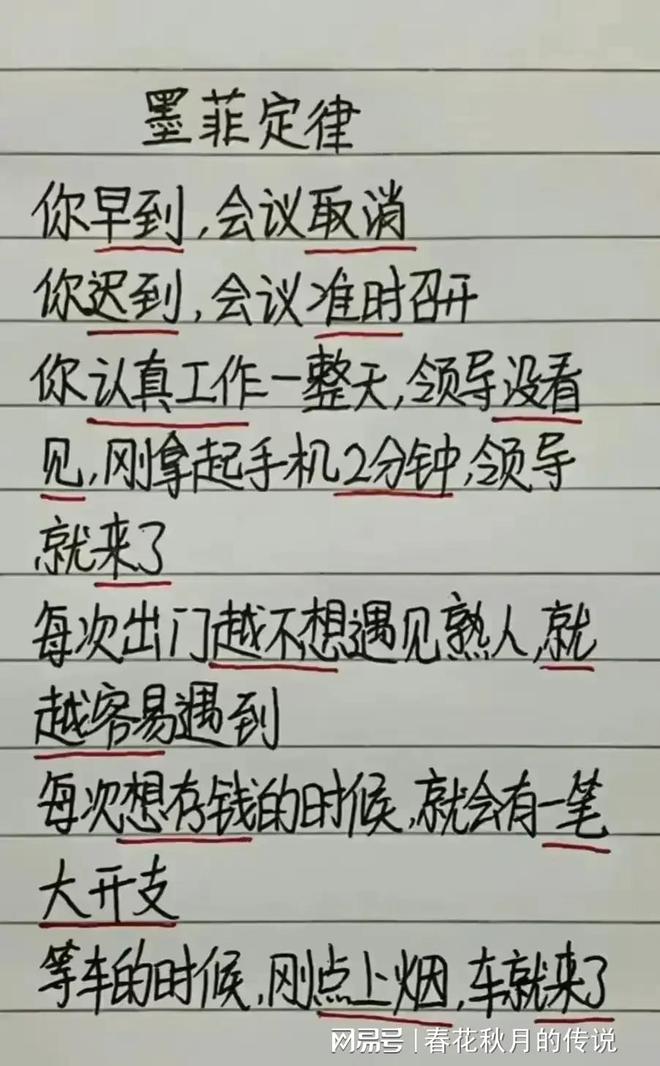 墨菲定律
你早到,会议取消
你迟到,会议准时召开
你认真工作一整天,领导没看
见,刚拿起手机2分钟,领导
就来了
每次出门越不想遇见熟人,就
越容易遇到
每次想存钱的时候,就会有一笔
大开支
等车的时候,刚点上烟,车就来了
网易号 | 春花秋月的传说